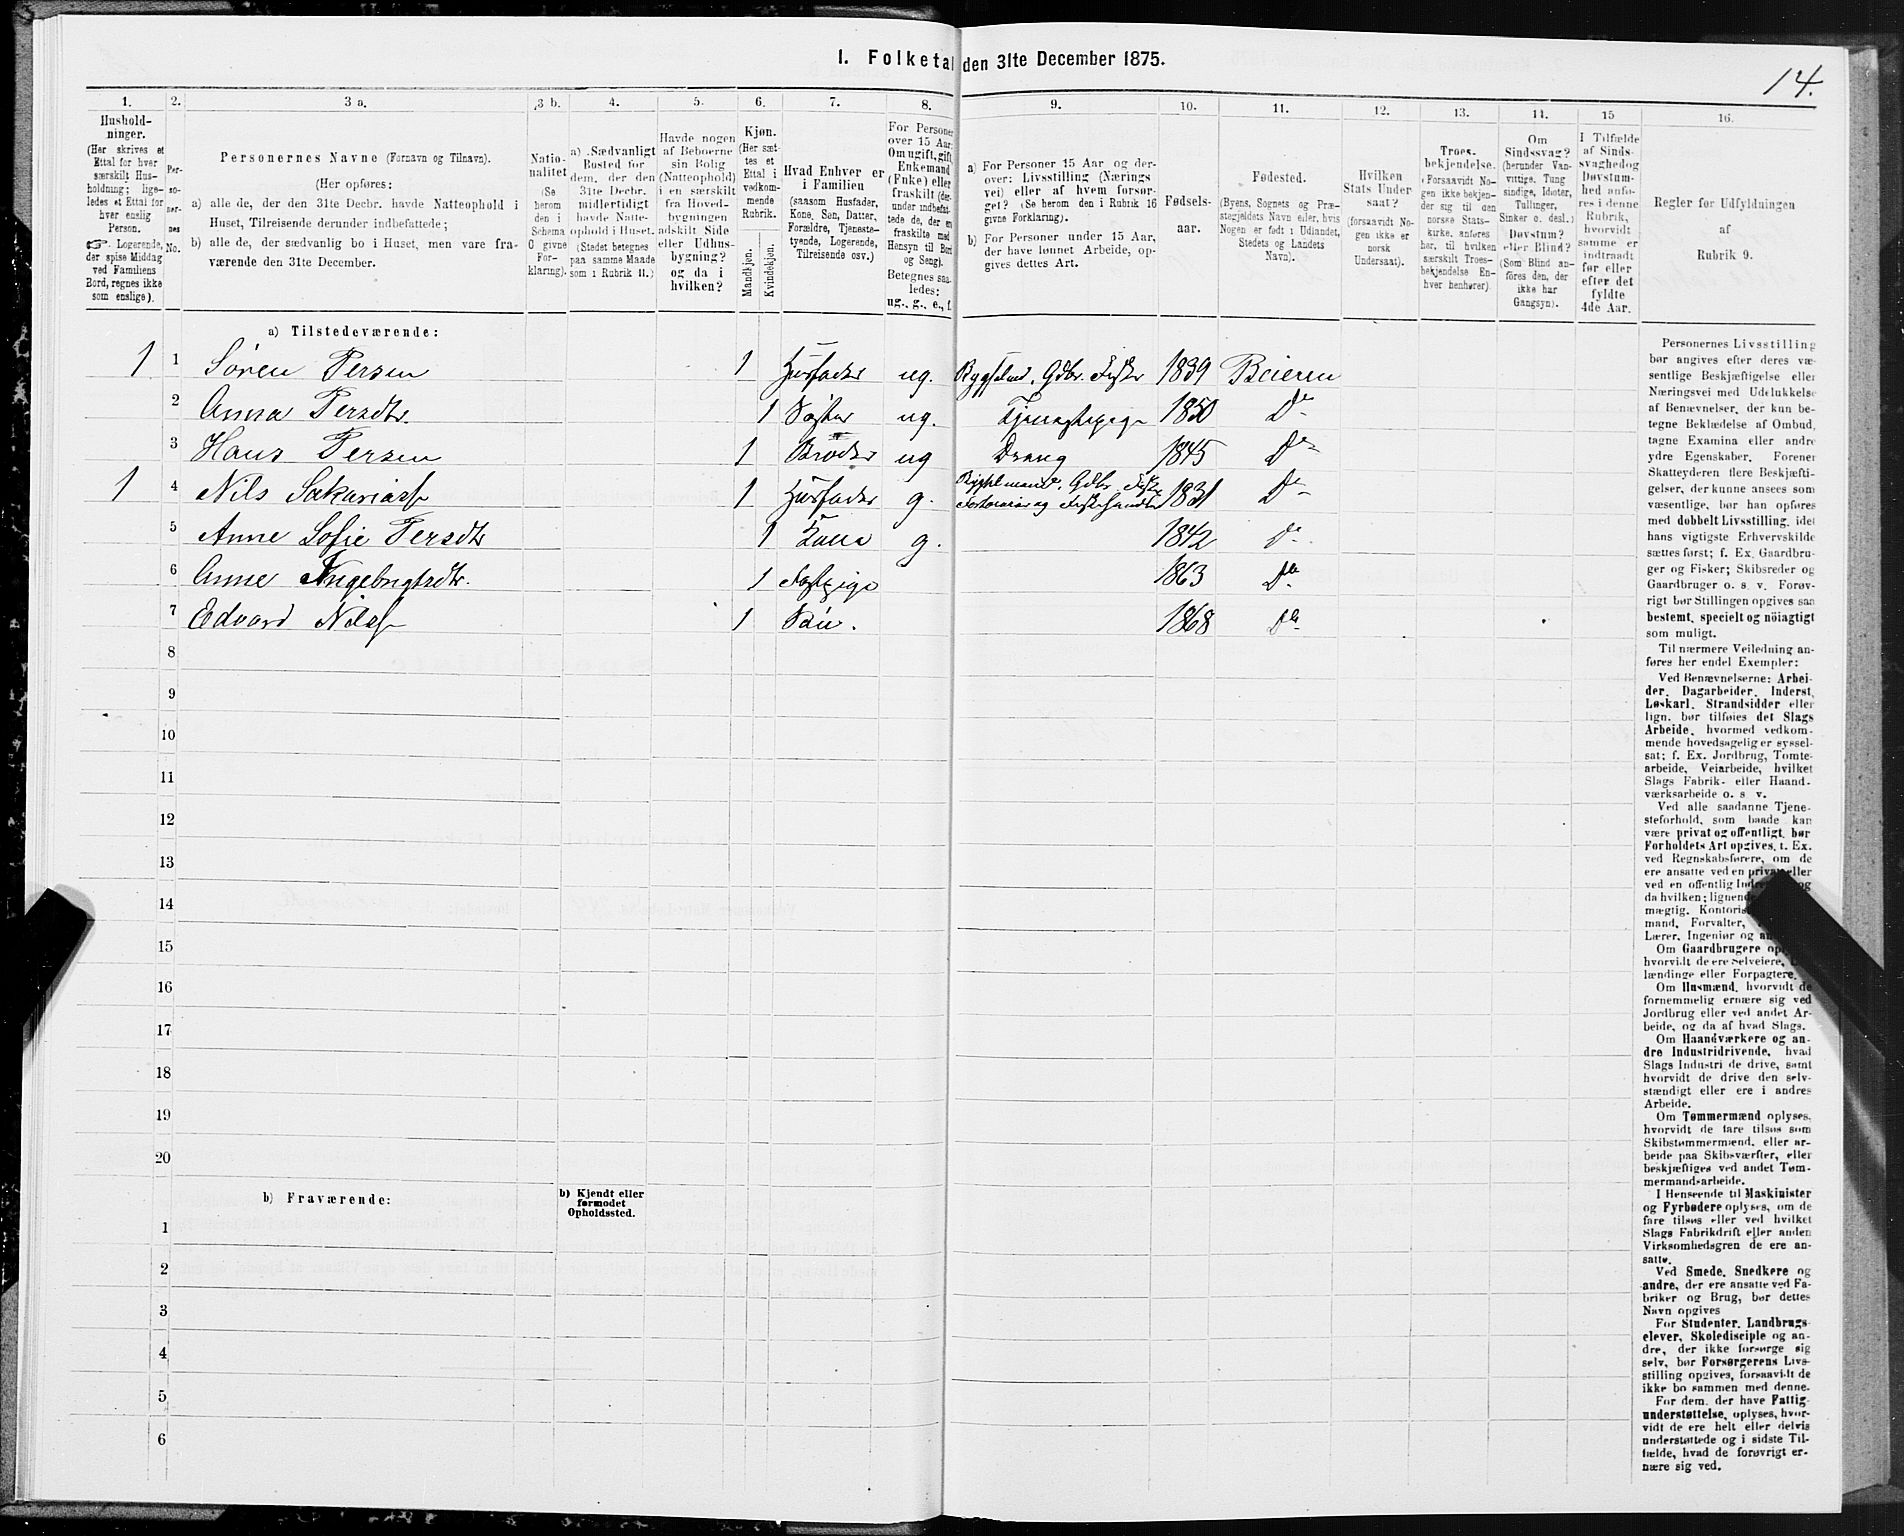 I. Folketal den 31te December 1875.
14.
1.
2.
3 a.
3 b.
4.
5.
6.
7.
8.
9.
10.
11.
12.
13.
14.
15
16.
Hushold-
ninger.
(Her skrives et
Ettal for hver
særskilt Hus-
holdning; lige-
ledes et Ettal for
hver enslig
Person.
☞ Logerende,
der spise Middag
ved Familiens
Bord, regnes ikke
som enslige).
Per-
so-
ner-
nes
No.
Personernes Navne (Fornavn og Tilnavn).
(Her opføres:
a) alle de, der den 31te Decbr. havde Natteophold i
Huset, Tilreisende derunder indbefattede;
b) alle de, der sædvanlig bo i Huset, men vare fra-
værende den 31te December.
Natio-
nalitet
(Se
herom
den i
Schema
O givne
For-
klaring).
a) Sædvanligt
Bosted for
dem, der den
31te Decbr.
midlertidigt
havde Natte-
ophold i Huset.
(Stedet betegnes
paa samme Maade
som i Rubrik 11.)
Havde nogen
af Beboerne
sin Bolig
(Natteophold)
i en særskilt
fra Hoved-
bygningen
adskilt Side
eller Udhus-
bygning?
og da i
hvilken?
Kjøn.
(Her sæt-
tes et
Ettal i
vedkom-
mende
Rubrik.
Mandkjøn.
Kvindekjøn.
Hvad Enhver er
i Familien
(saasom Husfader,
Kone, Søn, Datter,
Forældre, Tjeneste-
tyende, Logerende,
Tilreisende osv.)
For Personer
over 15 Aar:
Om ugift, gift,
Enkemand
(Enke) eller
fraskilt (der-
under indbefat-
tede de, der ere
fraskilte med
Hensyn til Bord
og Seng).
Betegnes saa-
ledes:
ug., g., e., f.
a) For Personer 15 Aar og der-
over: Livsstilling (Nærings
vei) eller af hvem forsør-
get? (Se herom den i Rubrik 16
givne Forklaring).
b) For Personer under 15 Aar,
der have lønnet Arbeide, op-
gives dettes Art.
Fødsels-
aar.
Fødested.
(Byens, Sognets og Præ-
stegjeldets Navn eller, hvis
Nogen er født i Udlandet,
Stedets og Landets
Navn).
Hvilken
Stats Under
saat?
(forsaavidt No-
gen ikke er
norsk
Undersaat).
Troes-
bekjendelse.
(Forsaavidt No-
gen ikke bekjen-
der sig til den
norske Stats-
kirke, anføres
her, til hvilken
særskilt Troes-
bekjendelse En-
hver henhører).
Om
Sindssvag?
(herunder Van-
vittige, Tung
sindige, Idioter,
Tullinger,
Sinker o. desl.)
Døvstum?
eller Blind?
(Som Blind an-
føres den, der
ikke har
Gangsyn).
I Tilfælde
af Sinds-
svaghed og
Døvstum-
hed anfø-
res i denne
Rubrik,
hvorvidt
samme er
indtraadt
før eller
efter det
fyldte
4de Aar.
Regler for Udfyldningen
af
Rubrik 9.
a) Tilstedeværende:
1 1 Søren Persen 1 Husfader ug. Gdbr. Fisker 1839 Beieren
2 Anna Persdtr. 1 Søster ug. Tjenestepige 1850 Do
3 Hans Persen 1 Broder ug Dreng 1845 Do
1 4 Nils Sakariass 1 Husfader g. Gdbr. Fisker 1831 Do
5 Anne Sofie Persdtr 1 Kone g. 1842 Do
6 Anne Ingebrigtsdtr. 1 Fostpige 1863 Do
7 Edvard Nilss 1 Søn. 1868 Do
8
9
10
11
12
13
14
15
16
17
18
19
20
b) Fraværende:
b) Kjendt eller
formodet
Opholdssted.
1
2
3
4
5
6
Personernes Livsstilling
bør angives efter deres væ-
sentlige Beskjæftigelse eller
Næringsvei med Udelukkelse
af Benævnelser, der kun be-
tegne Beklædelse af Ombud,
tagne Examina eller andre
ydre Egenskaber. Forener
Skatteyderen flere Beskjæfti-
gelser, der kunne ansees som
væsentlige, bør han opføres
med dobbelt Livsstilling, idet
hans vigtigste Erhvervskilde
sættes først; f. Ex. Gaardbru-
ger og Fisker; Skibsreder og
Gaardbruger o. s. v. Forøv-
rigt bør Stillingen opgives saa
bestemt, specielt og nöiagtigt
som muligt.
Til nærmere Veiledning an-
føres her endel Exempler:
Ved Benævnelserne: Arbei-
der, Dagarbeider, Inderst,
Løskarl, Strandsidder eller
lign. bør tilføies det Slags
Arbeide, hvormed vedkom-
mende hovedsagelig er syssel-
sat; f. Ex. Jordbrug, Tomte-
arbeide, Veiarbeide, hvilket
Slags Fabrik- eller Haand-
værksarbeide o. s. v.
Ved alle saadanne Tjene-
steforhold, som baade kan
være privat og offentligt, bør
Forholdets Art opgives, t. Ex.
ved Regnskabsførere, om de
ere ansatte ved en privat eller
ved en offentlig og
da hvilken;
mægtig, Kontoris
mand, Forvalter,
Lærer, Ingeniør og
Om Gaardbrugere
hvorvidt de ere Selveiere,
lændinge eller Forpagtere.
Om Husmænd, hvorvidt de
fornemmelig ernære sig ved
Jordbrug eller ved andet Ar-
beide, og da af hvad Slags.
Om Haandværkere og an-
dre Industridrivende, hvad
Slags Industri de drive, samt
hvorvidt de drive den selv-
stændigt eller ere i andres
Arbeide.
Om Tømmermænd oplyses,
hvorvidt de fare tilsøs som
Skibstømmermænd, eller ar-
beide paa Skibsværfter, eller
beskjæftiges ved andet Tøm-
mermandsarbeide.
I Henseende til Maskinister
og Fyrbødere oplyses, om de
fare tilsøs eller ved hvilket
Slags Fabrikdrift eller anden
Virksomhedsgren de ere an-
satte.
Ved Smede, Snedkere og
andre, der ere ansatte ved Fa-
briker og Brug, bør dettes
Navn opgives
For Studenter, Landbrugs-
elever, Skoledisciple og an-
dre, der ikke forsørge sig
selv, bør Forsørgerens Livs-
stilling opgives, forsaavidt de
ikke bo sammen med denne.
For dem, der have Fattig-
understøttelse, oplyses, hvor-
vidt de ere helt eller delvis
understøttede og i sidste Til-
fælde, hvad de forøvrigt er-
nære sig ved.